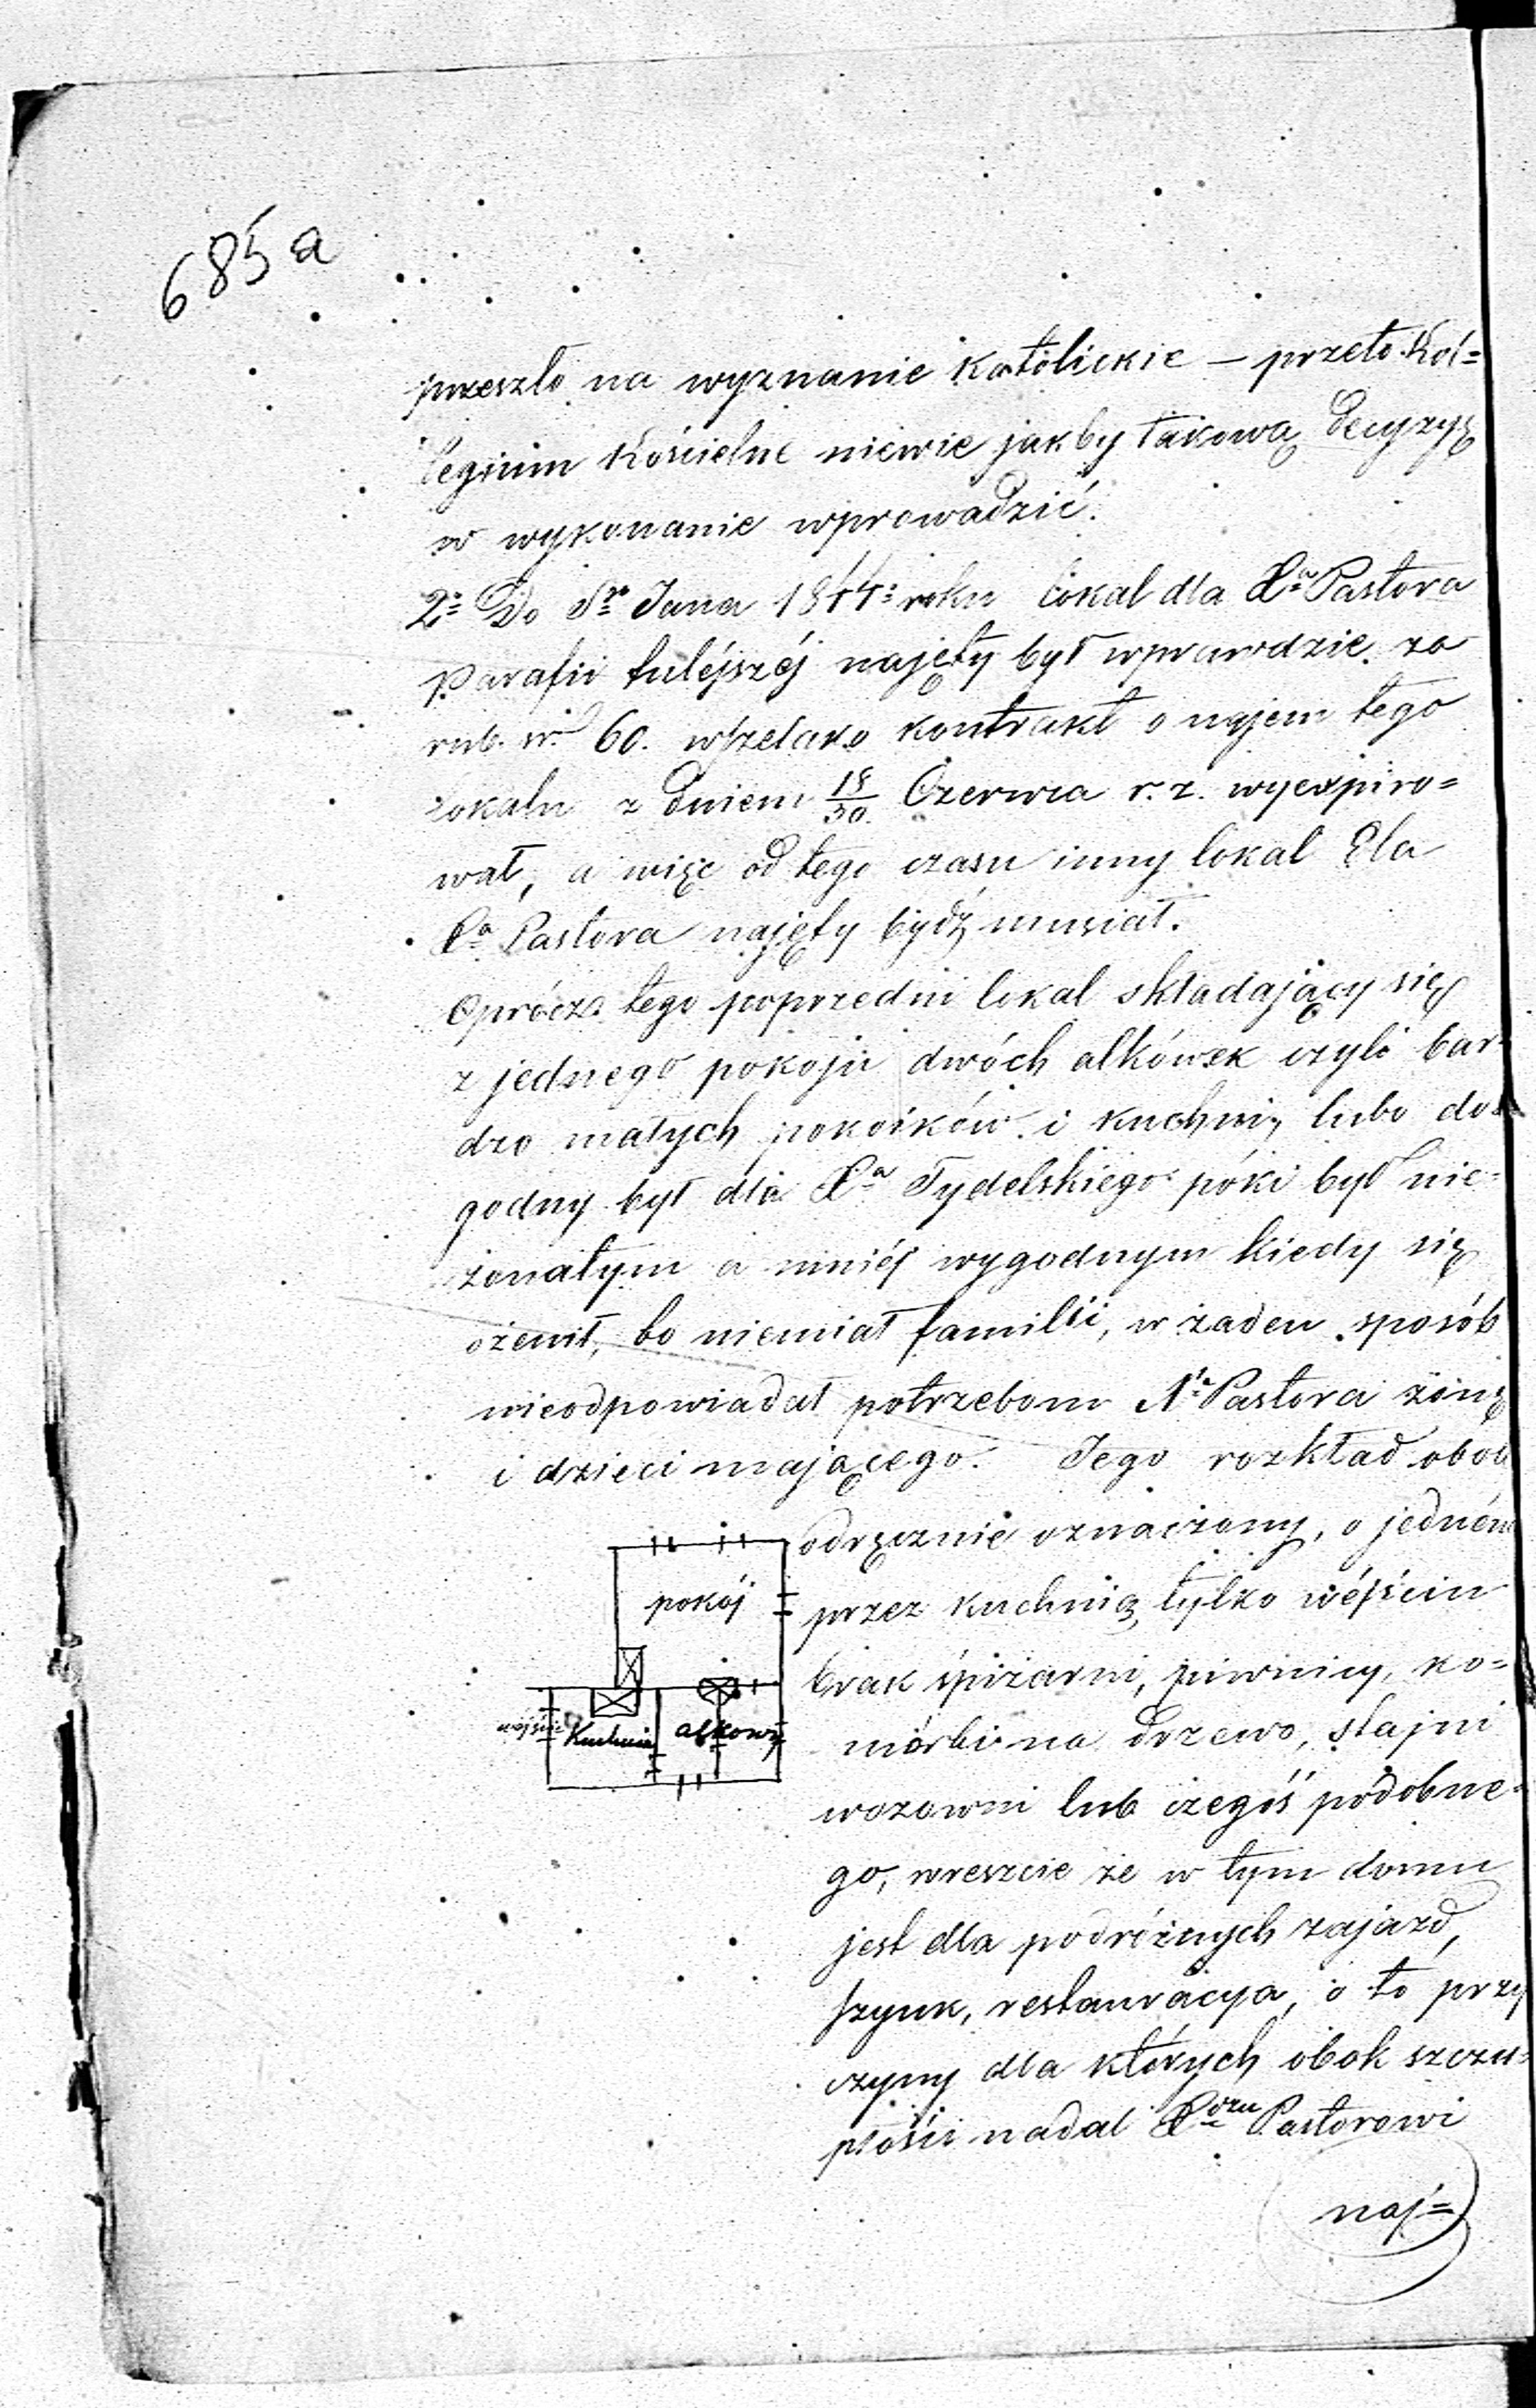 685a
przeszło na wyznanie Katolickie – przeto Kol=
legium Kościelne niewie jakby takową decyzyę
w wykonanie wprowadzić.
2º Do Sgo Jana 1844 roku lokal dla Xa Pastora
Parafii tutéjszéj najęty był wprawdzie za
rub. sr. 60. wszelako kontrakt o najem tego
lokalu z dniem 18/30 Czerwca r.z. wyexpiro=
wał, a więc od tego czasu inny lokal dla
Xa Pastora najęty bydź musiał.
Oprócz tego poprzedni lokal składający się
z jednego pokoju dwóch alkówek czyli bar-
dzo małych pokoików i kuchni, lubo do
godny był dla Xa Tydelskiego póki był nie-
żonatym a mniéj wygodnym kiedy się
ożenił, bo niemiał familii, w żaden sposób
nieodpowiadał potrzebom Pastora żonę
i dzieci mającego. Jego rozkład obok
odręcznie oznaczony, o jedném
przez kuchnią tylko wéjściu
brak śpiżarni, piwnicy, ko=
mórki na drzewo, stajni
wozowni lub czegoś podobne=
go, wreszcie że w tym domu
jest dla podróżnych zajazd,
szynk, restauracya, o to przy
czyny dla których obok szczu=
płości nadal Pastorowi
naj=
pokój
wejście Kuchnia alkowy